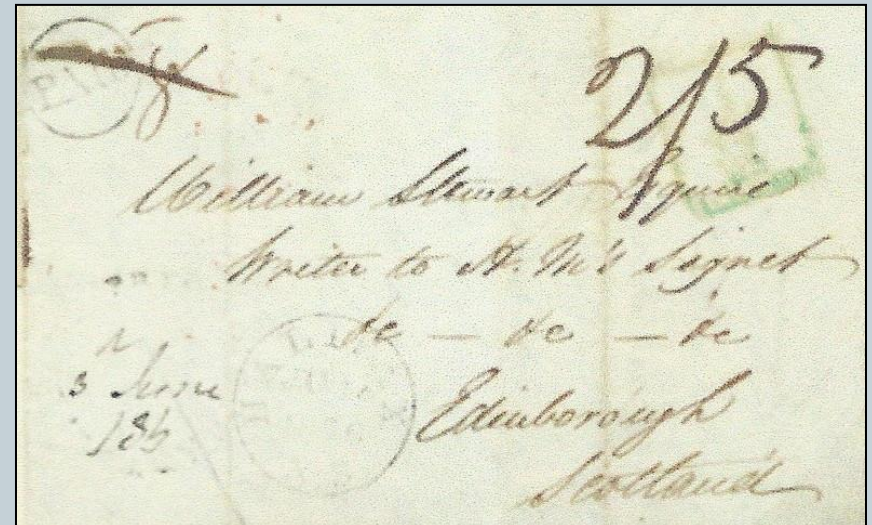 2/5
William Stewart Esquire
Writer to H. M's Signet
&c — &c — &c
3 June
Edinborough
Scotland